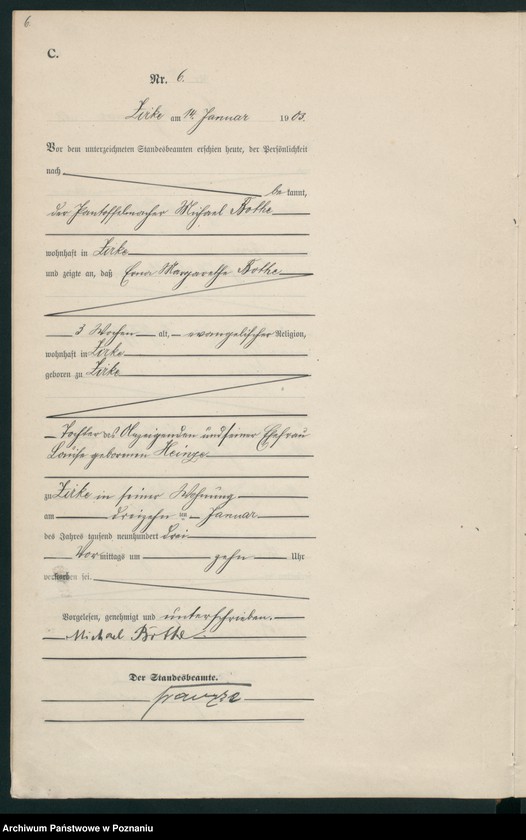 6
C.
Nr. 6.
Zirke am 14. Januar 1903.
Vor dem unterzeichneten Standesbeamten erschien heute, der Persönlichkeit
nach
bekannt,
der Pantoffelmacher Michael Bothe
wohnhaft in Zirke
und zeigte an, daß Erna Margarethe Bothe
3 Wochen alt, evangelischer Religion,
wohnhaft in Zirke
geboren zu Zirke
Tochter des Anzeigenden und seiner Ehefrau
Louise geborenen Heinze
zu Zirke in seiner Wohnung
am dreizehnten Januar
des Jahres tausend neunhundert drei
Vormittags um zehn Uhr
verstorben sei.
Vorgelesen, genehmigt und unterschrieben.
Michael Bothe
Der Standesbeamte.
Archiwum Państwowe w Poznaniu